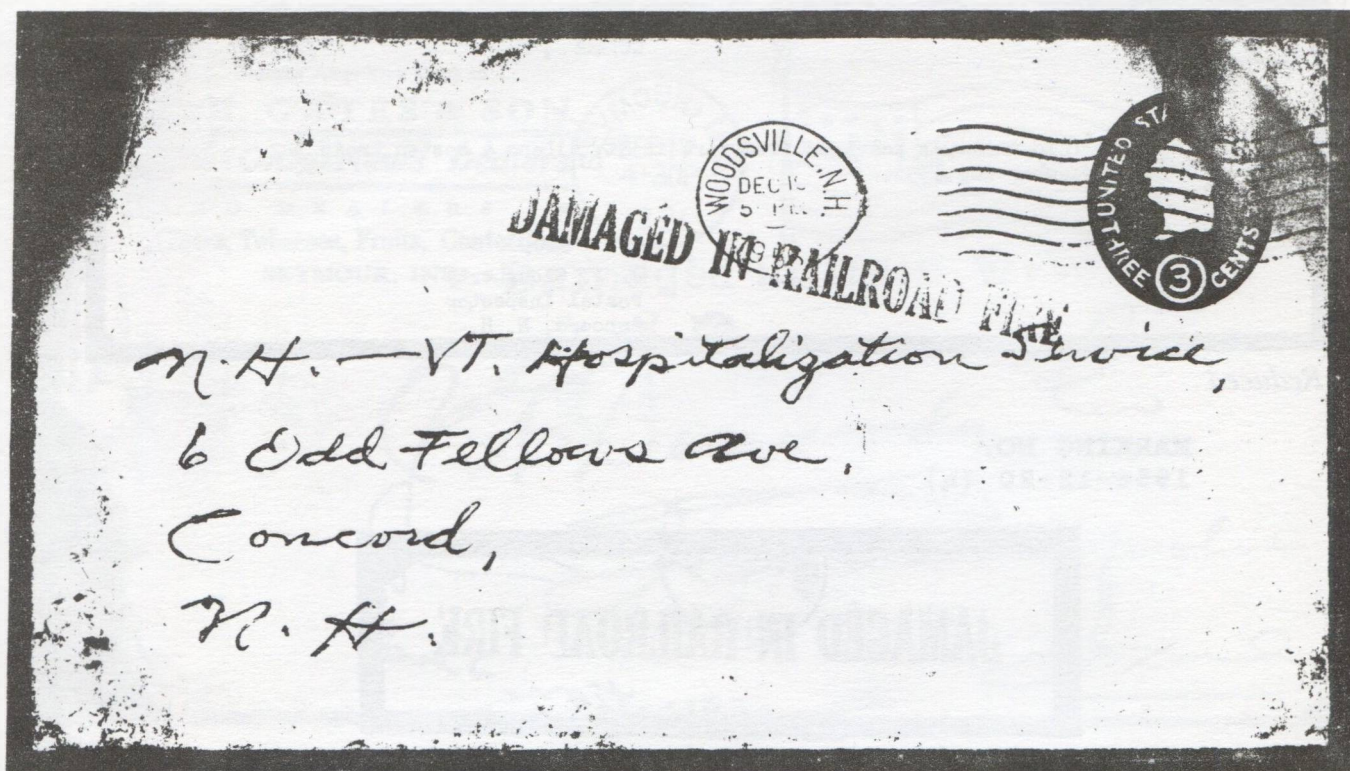 WOODSVILLE, N.H.
DEC
5
UNITED
THREE 3 CENTS
DAMAGED IN RAILROAD FIRE
N.H. — VT. Hospitalization Service,
6 Odd Fellows Ave.
Concord,
N. H.